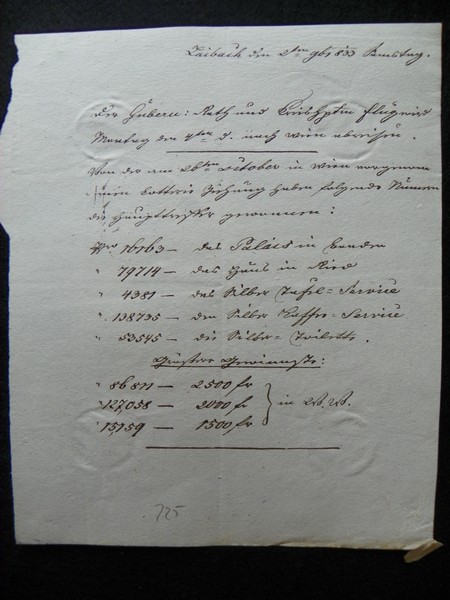 Laibach den 2ten 9br 833 Samstag.
Der Gubern: Rath und Kreishptm Flügnis
Montag den 4ten d. nach Wien abreisen.
Von der am 26ten October in Wien vorgenom
Ziehung haben folgende Numern
die Haupttreffer gewonnen:
Nro 76163 — das Palais in Baaden
" 79714 — das Haus in Ried
" 4381 — das Silber Tafel-Service
" 138735 — den Silber Caffee-Service
" 53545 — die Silber-Toilette.
Gewinnste:
" 86811 — 2500 fr
" 127,058 — 2000 fr } in W.W.
" 15159 — 1500 fr
725